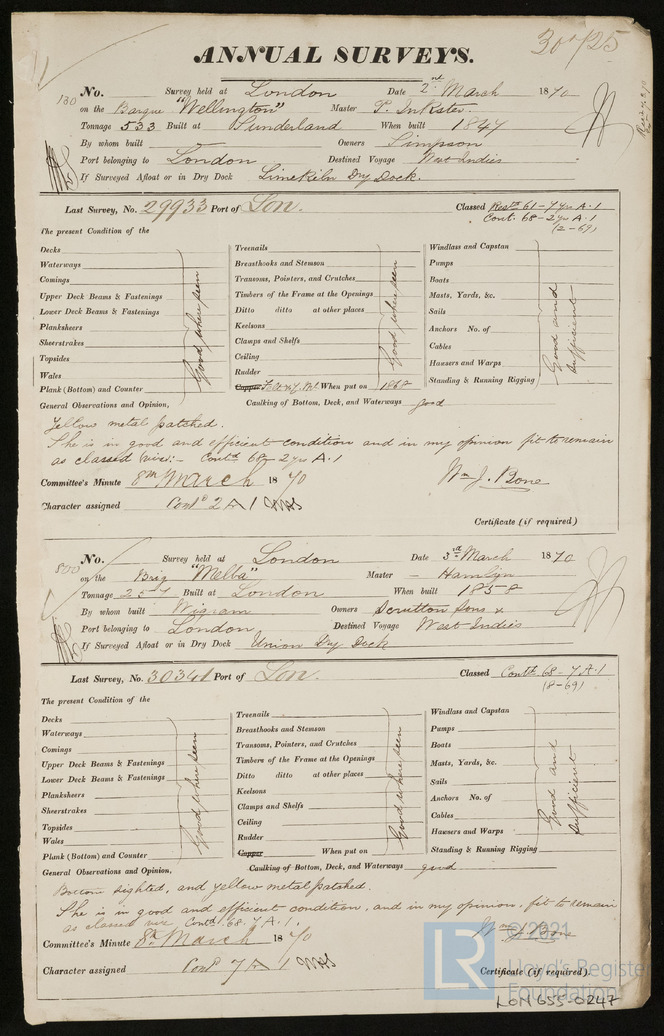 30125
ANNUAL SURVEYS.
130 No. Survey held at London Date 2nd March 1870
on the Barque "Wellington" Master T. Inkster
Tonnage 533 Built at Sunderland When built 1847
By whom built Owners Simpson
Port belonging to London Destined Voyage West Indies
If Surveyed Afloat or in Dry Dock Limekiln Dry Dock.
Last Survey, No. 29933 Port of Lon. Classed Restd 61-7yrs A.1
Cont. 68-2yrs A.1
(2-69)
The present Condition of the
Decks
Waterways
Comings
Upper Deck Beams & Fastenings
Lower Deck Beams & Fastenings
Planksheers
Sheerstrakes
Topsides
Wales
Plank (Bottom) and Counter
Good where seen
Treenails
Breasthooks and Stemson
Transoms, Pointers, and Crutches
Timbers of the Frame at the Openings
Ditto ditto at other places
Keelsons
Clamps and Shelfs
Ceiling
Rudder
Copper Felt & Y. Ml When put on 1868
Good where seen
Windlass and Capstan
Pumps
Boats
Masts, Yards, &c.
Sails
Anchors No. of
Cables
Hawsers and Warps
Standing & Running Rigging
Good and
sufficient
General Observations and Opinion, Caulking of Bottom, Deck, and Waterways good
Yellow metal patched.
She is in good and efficient condition and in my opinion fit to remain
as classed vizt:- Contd 68-2yrs A.1
Committee's Minute 8th March 1870 Wm J. Bone
Character assigned Contd 2 A 1
Certificate (if required)
No. Survey held at London Date 3rd March 1870
on the Brig "Melba" Master - Hamlyn
Tonnage 257 Built at London When built 1858
By whom built Wigram Owners Scrutton Sons &
Port belonging to London Destined Voyage West Indies
If Surveyed Afloat or in Dry Dock Union Dry Dock
Last Survey, No. 30341 Port of Lon. Classed Contd 68-7 A.1
(8-69)
The present Condition of the
Decks
Waterways
Comings
Upper Deck Beams & Fastenings
Lower Deck Beams & Fastenings
Planksheers
Sheerstrakes
Topsides
Wales
Plank (Bottom) and Counter
Good where seen
Treenails
Breasthooks and Stemson
Transoms, Pointers, and Crutches
Timbers of the Frame at the Openings
Ditto ditto at other places
Keelsons
Clamps and Shelfs
Ceiling
Rudder
Copper When put on
Good where seen
Windlass and Capstan
Pumps
Boats
Masts, Yards, &c.
Sails
Anchors No. of
Cables
Hawsers and Warps
Standing & Running Rigging
Good and
sufficient
General Observations and Opinion, Caulking of Bottom, Deck, and Waterways good
Bottom sighted, and yellow metal patched.
She is in good and efficient condition, and in my opinion, fit to remain
as classed viz. Contd 68. 7 A.1.
Committee's Minute 8th March 1870 Wm J. Bone
Character assigned Contd 7 A 1
Certificate (if required).
© 2021
LR Lloyd's Register
Foundation
LON 655-0247